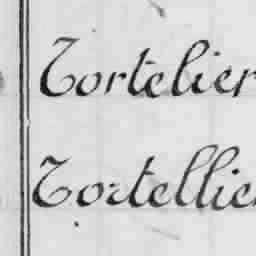 Tortelier
Tortellier